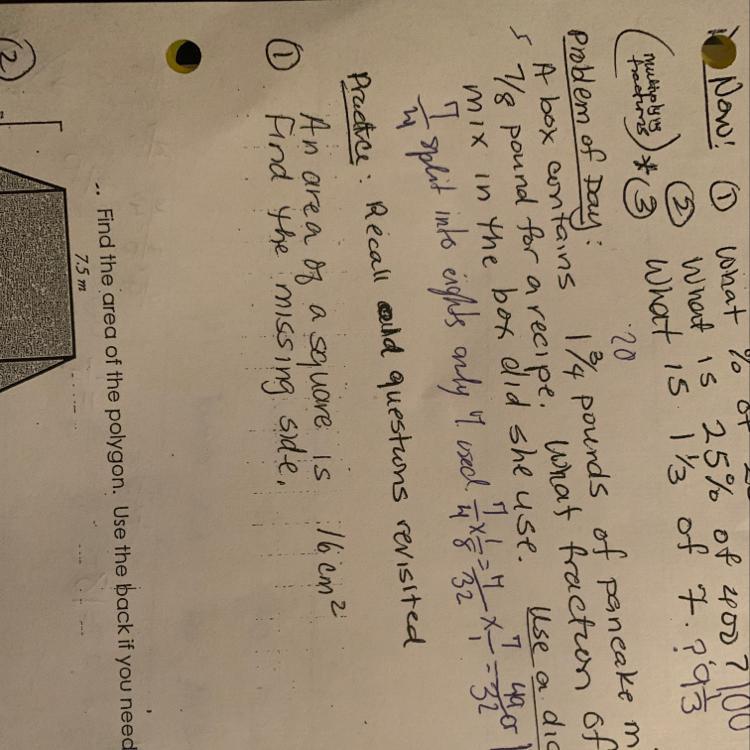 Now! ① what % of
② What is 25% of 400? 100
(multiplying fractions) * ③ What is 1 1/3 of 7.? 9 1/3
.20
Problem of Day:
A box contains 1 3/4 pounds of pancake m
7/8 pound for a recipe. What fraction of
mix in the box did she use. Use a dia
7/4 split into eights only 7 used 7/4 x 1/8 = 7/32 x 7/1 = 49/32 or 1
Practice: Recall questions revisited
① An area of a square is 16 cm²
Find the missing side.
Find the area of the polygon. Use the back if you need
7.5 m
②